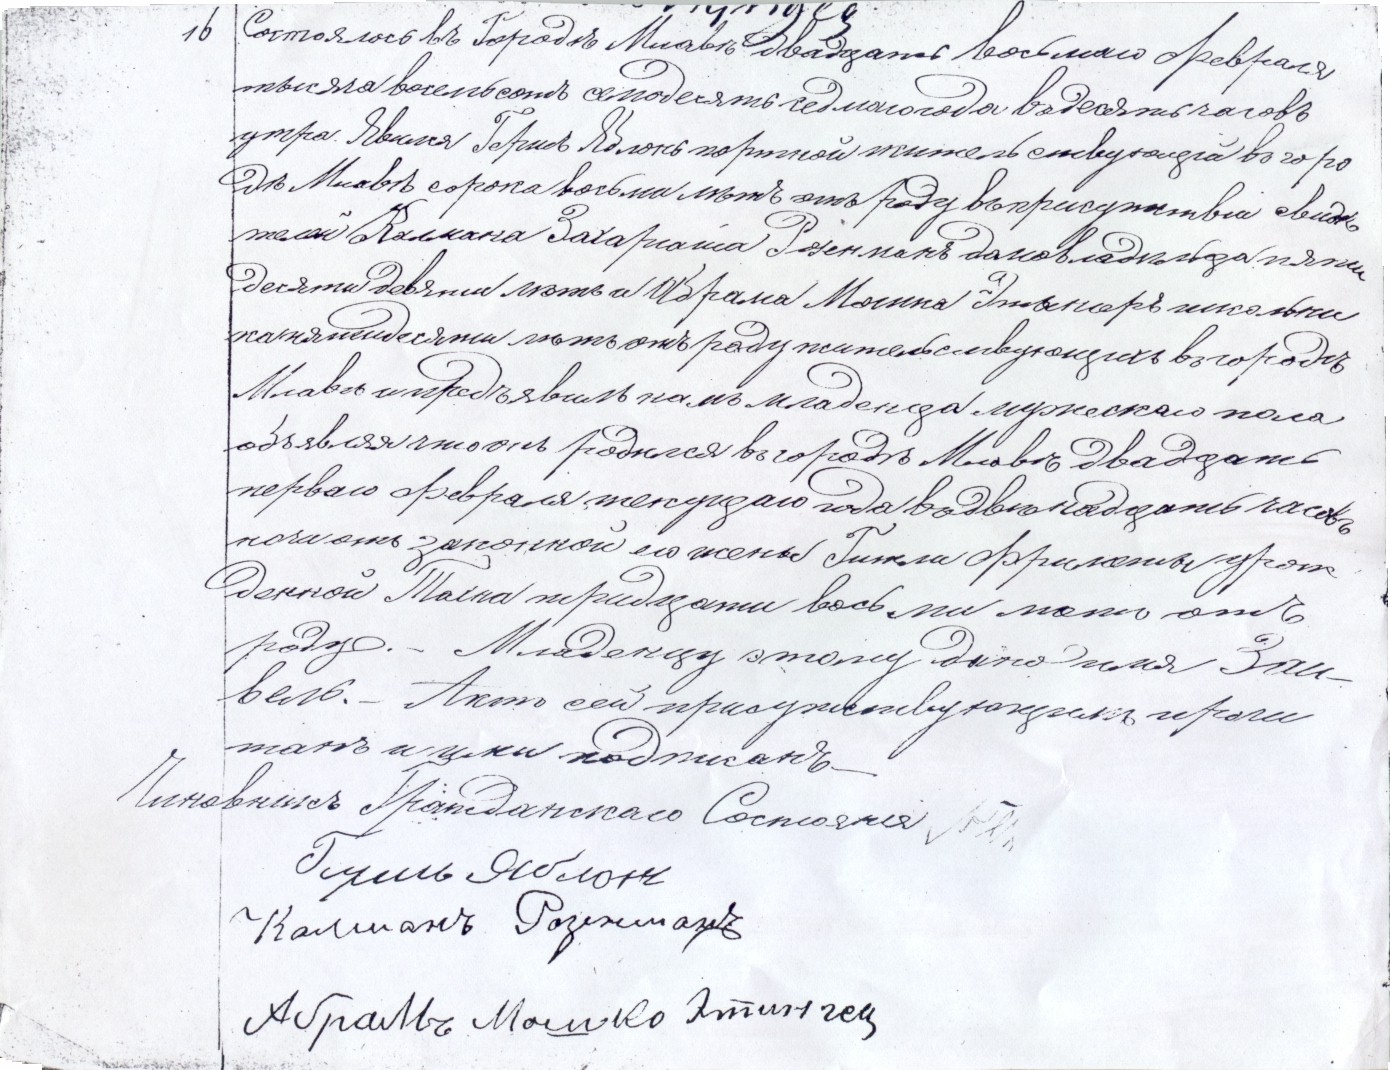 16 Состоялось въ Городѣ Млавѣ двадцать восьмаго Февраля
тысяча восемьсотъ семьдесятъ седмаго года въ десять часовъ
утра. Явился Яблонь портной жительствующій въ горо
дѣ Млавѣ сорока восьми лѣтъ отъ роду въ присутствіи свидѣ
телей Калмана Захаріаша Розенманъ домовладѣльца пяти
десяти девяти лѣтъ и Абрама Мошка школьни
ка пятидесяти лѣтъ отъ роду жительствующихъ въ городѣ
Млавѣ и предъявилъ намъ младенца мужескаго пола
объявляя что онъ родился въ городѣ Млавѣ двадцать
перваго Февраля текущаго года въ двѣнадцать часовъ
ночи отъ законной его жены урож
денной тридцати восьми лѣтъ отъ
роду. — Младенцу этому дано имя Зай-
вель. — Актъ сей присутствующимъ прочи
танъ и ими подписанъ —
Чиновникъ Гражданскаго Состоянія
Яблон
Калманъ Розенманъ
Абрамъ Мошко